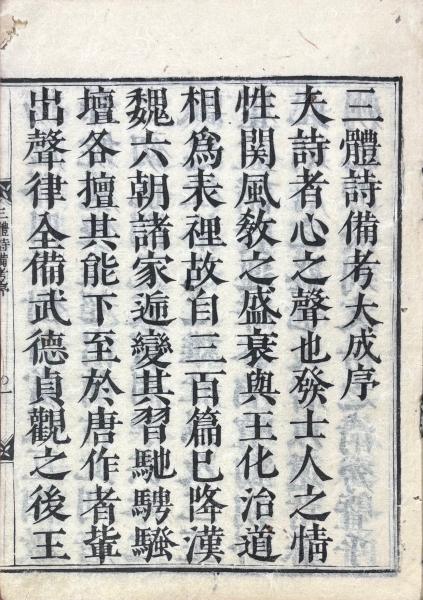 三體詩備考大成序
夫詩者心之聲也發士人之情
性関風教之盛衰與王化治道
相為表裡故自三百篇已降漢
魏六朝諸家遞變其習馳騁騷
壇各擅其能下至於唐作者輩
出聲律全備武德貞觀之後王
三體詩備考序